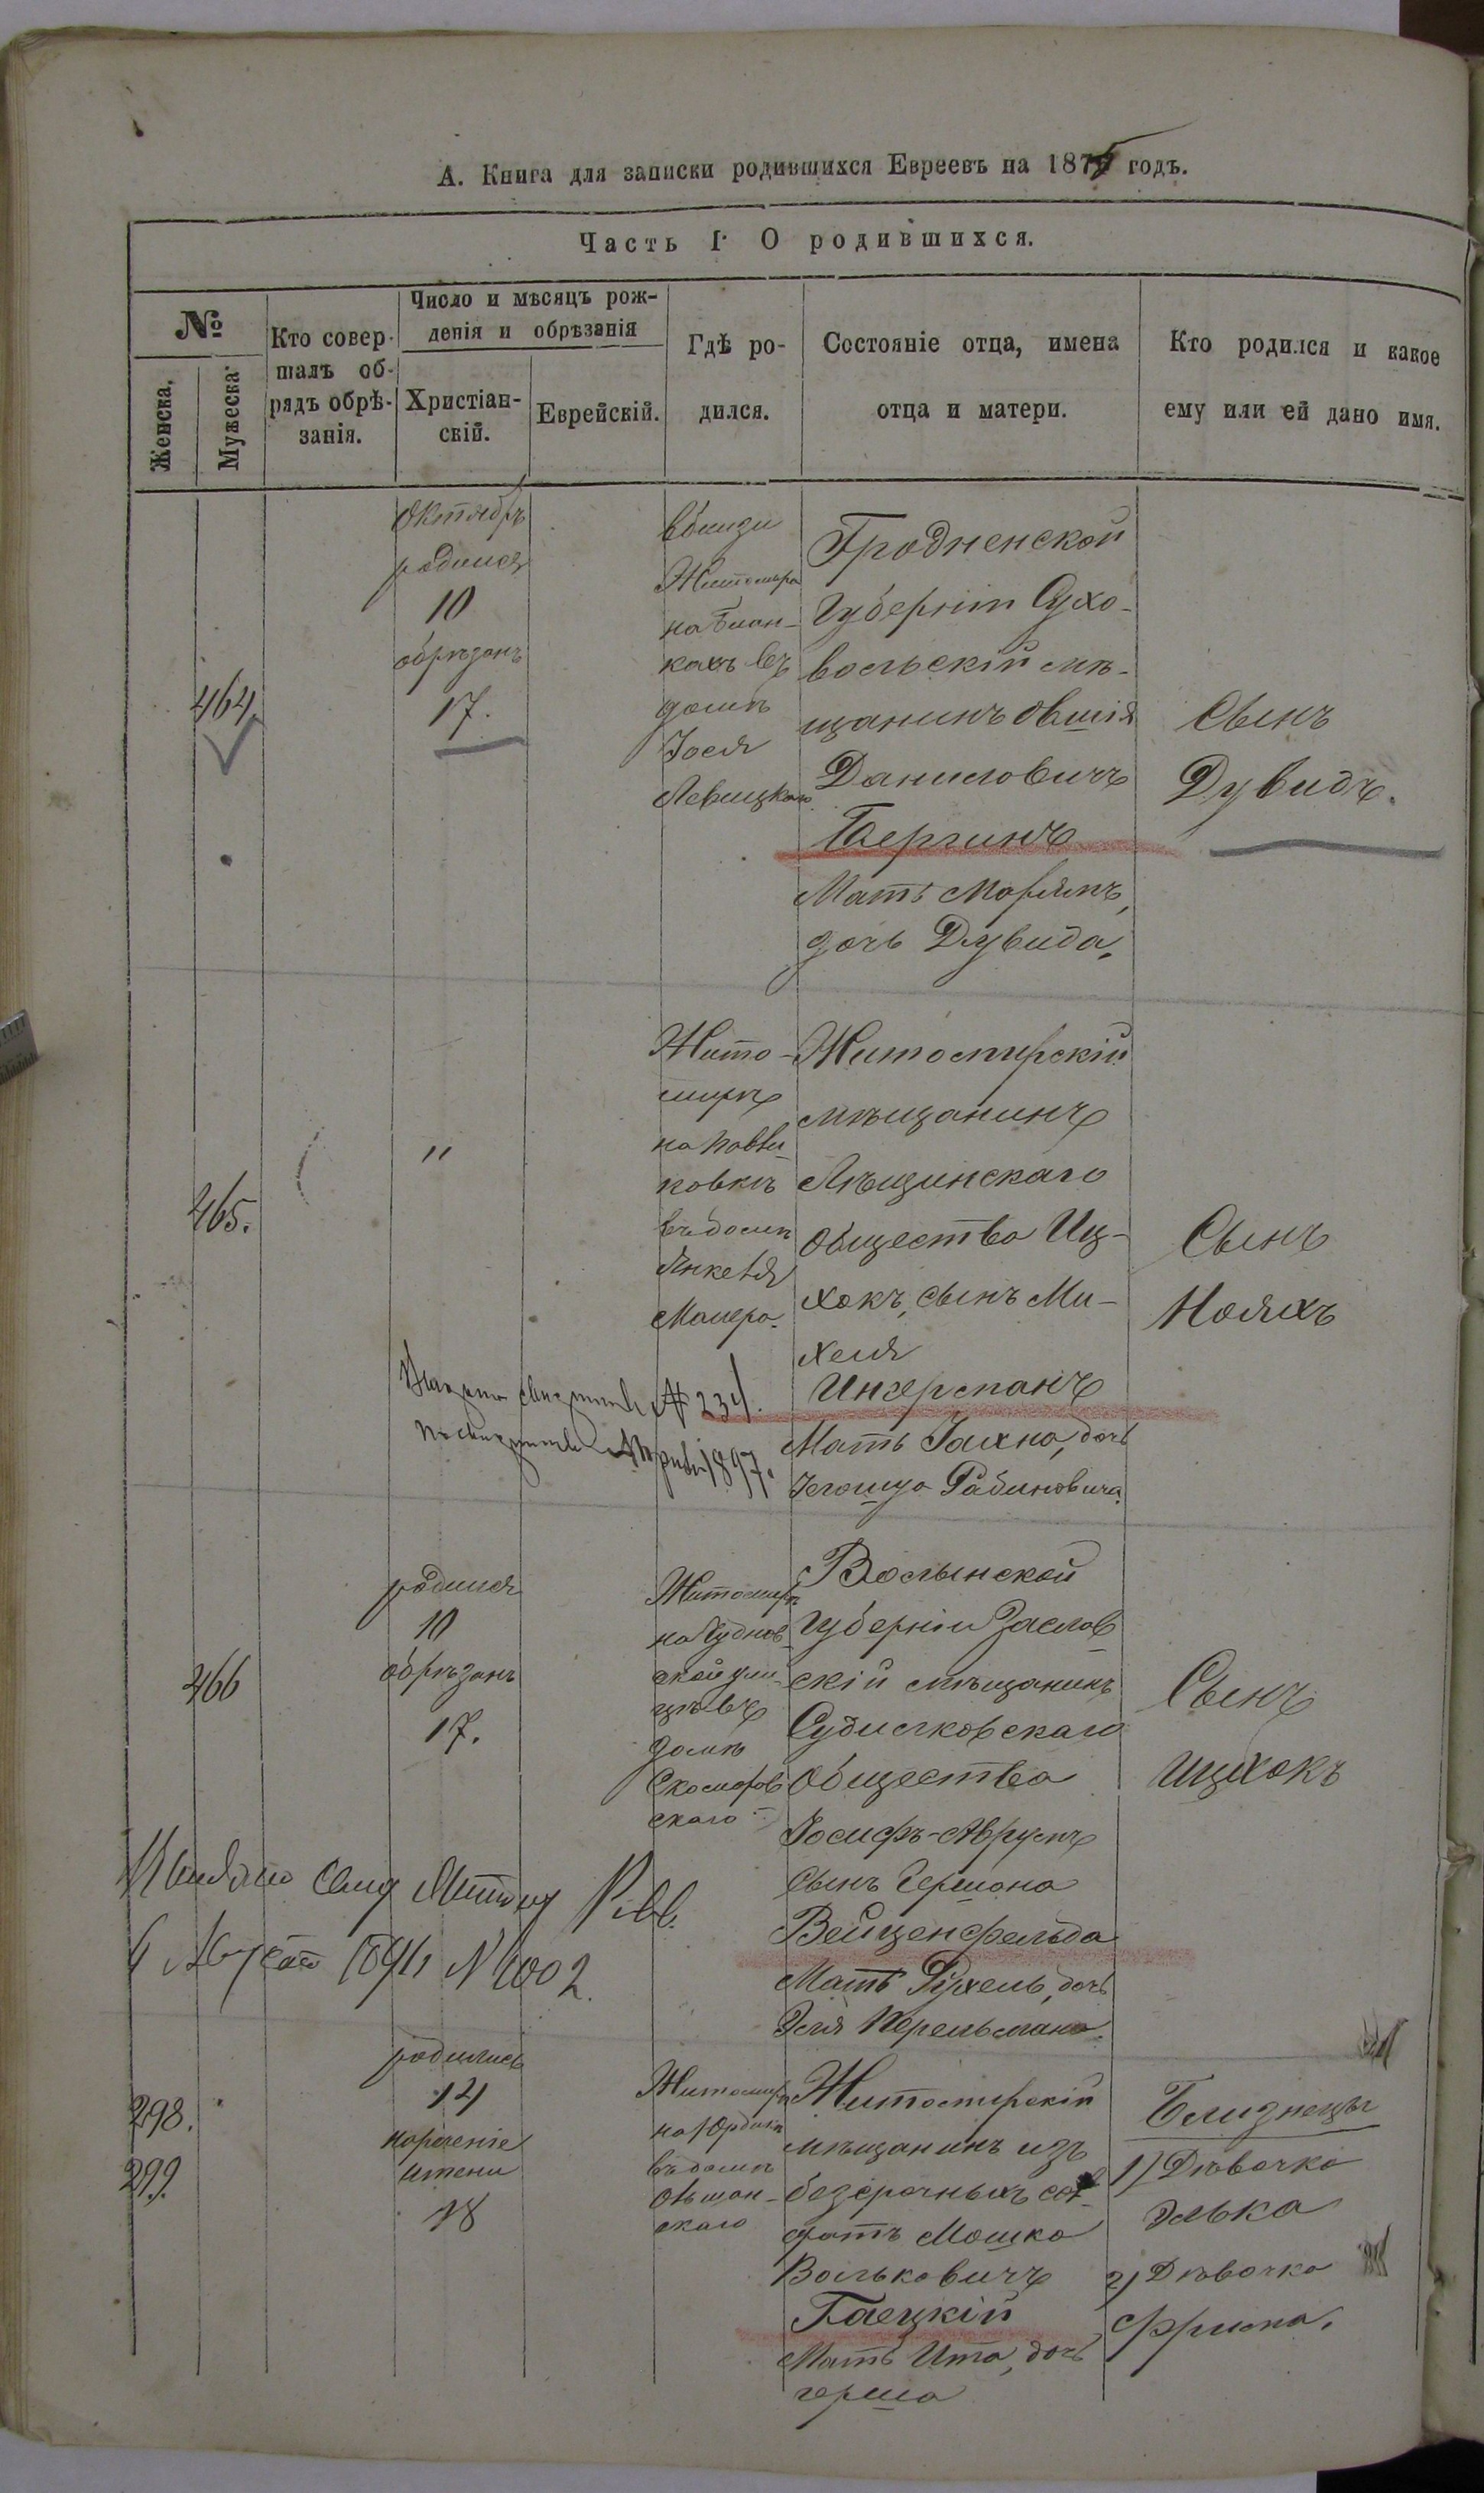 А. Книга для записки родившихся Евреевъ на 1875 годъ.
Часть I О родившихся.
№
Женска.
Мужеска
Кто совер-
шалъ об-
рядъ обрѣ-
занія.
Число и мѣсяцъ рож-
денія и обрѣзанія
Христіан-
скій.
Еврейскій.
Гдѣ ро-
дился.
Состояніе отца, имена
отца и матери.
Кто родился и какое
ему или ей дано имя.
464
Октябрь
родился
10
обрѣзанъ
17.
вблизи
Житомира
на
кахъ въ
домѣ
Іося
Левицкаго
Гродненской
Губерніи Сухо-
вольскій мѣ-
щанинъ Овшія
Даниловичъ
Бергинъ
Мать Маріямъ,
дочь Дувида.
Сынъ
Дувидъ.
465.
"
Жито-
мирѣ
на
ковкѣ
въ домѣ
Янкеля
Маиера.
Житомирскій
мѣщанинъ
Лѣщинскаго
общества Иц-
хокъ, сынъ Ми-
хеля
Инхерманъ
Мать Заиха, дочь
Іегошуа Рабиновича.
Сынъ
Нояхъ
№ 234.
1897.
466
родился
10
обрѣзанъ
17.
Житомирѣ
на Чуднов-
ской ули-
цѣ въ
домѣ
Скоморов
скаго
Волынской
Губерніи Заслав
скій мѣщанинъ
Судилковскаго
общества
Іосифъ-Аврумъ
сынъ Гершона
Вейценфельда
Мать Рухель, дочь
Эля Перельмана.
Сынъ
Ицхокъ
Августа № 1002.
298.
299.
родились
14
нареченіе
имени
18
Житомирѣ
въ домѣ
скаго
Житомирскій
мѣщанинъ изъ
безсрочныхъ сол-
датъ Мошко
Вольковичъ
Гаецкій
Мать Ита, дочь
Герша
Близнецы
1) Дѣвочка
Элька
2) Дѣвочка
Фрима.